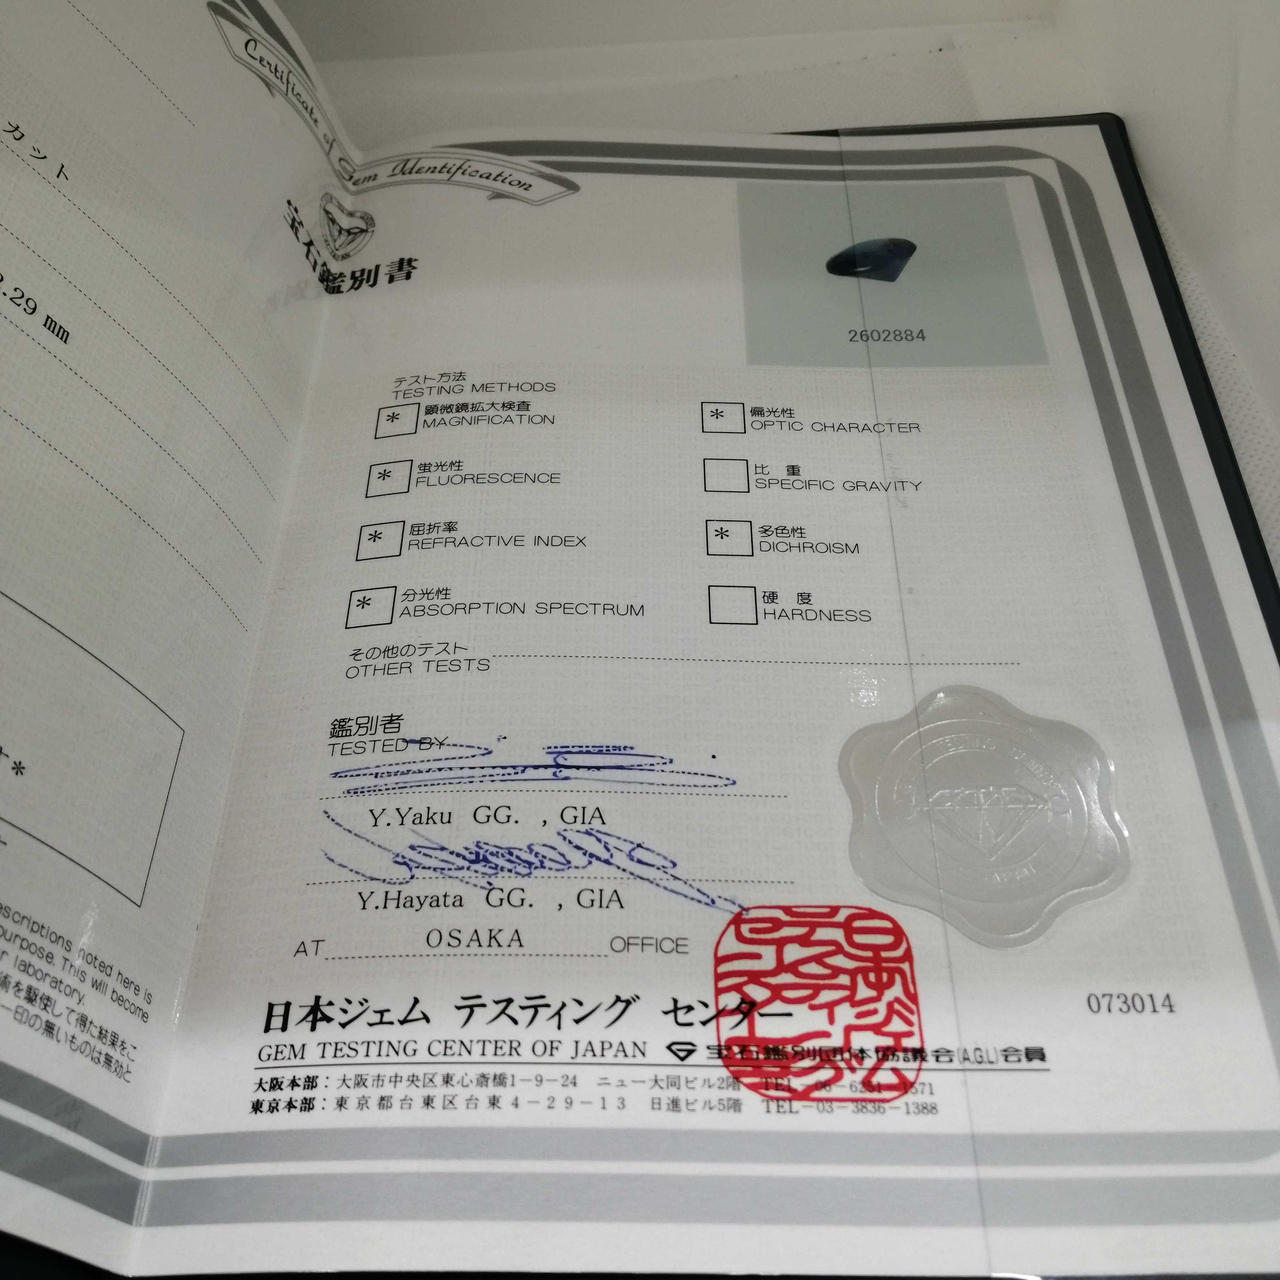 カット
.29 mm
*
escriptions noted here is
purpose. This will become
r laboratory.
術を駆使して得た結果をこ
一印の無いものは無効と
Certificate of Gem Identification
宝石鑑別書
2602884
テスト方法
TESTING METHODS
* 顕微鏡拡大検査
MAGNIFICATION
* 偏光性
OPTIC CHARACTER
* 蛍光性
FLUORESCENCE
比 重
SPECIFIC GRAVITY
* 屈折率
REFRACTIVE INDEX
* 多色性
DICHROISM
* 分光性
ABSORPTION SPECTRUM
硬 度
HARDNESS
その他のテスト
OTHER TESTS
鑑別者
TESTED BY
Y.Yaku GG. , GIA
Y.Hayata GG. , GIA
AT OSAKA OFFICE
073014
日本ジェム テスティング センター
GEM TESTING CENTER OF JAPAN 宝石鑑別団体協議会(A.G.L)会員
大阪本部：大阪市中央区東心斎橋1-9-24 ニュー大同ビル2階 TEL-06-6251-1571
東京本部：東京都台東区台東4-29-13 日進ビル5階 TEL-03-3836-1388